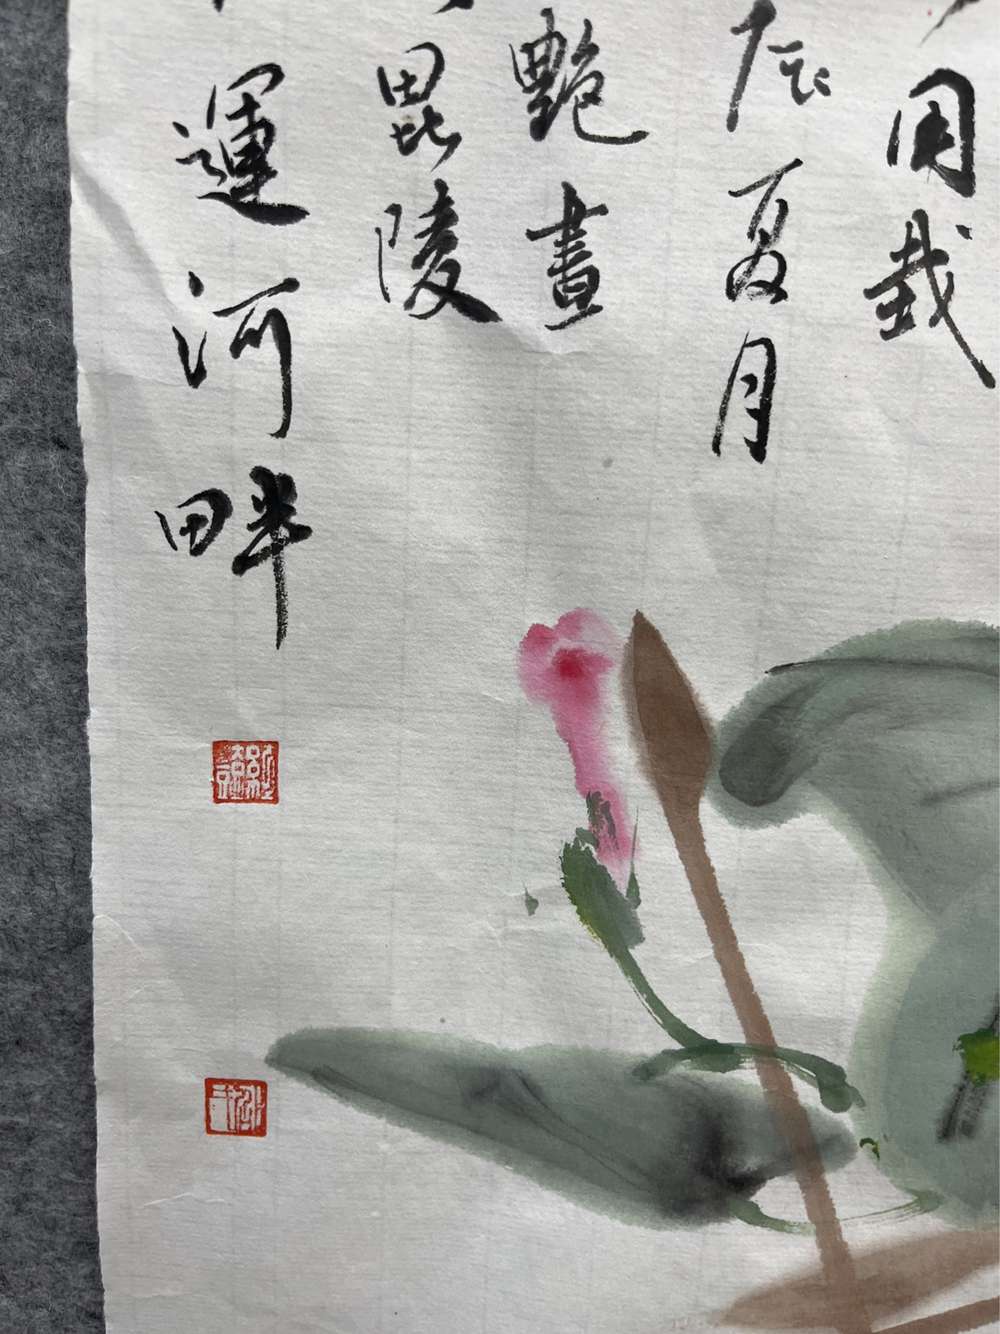 用哉
辰夏月
艷畫
毘陵
運河畔